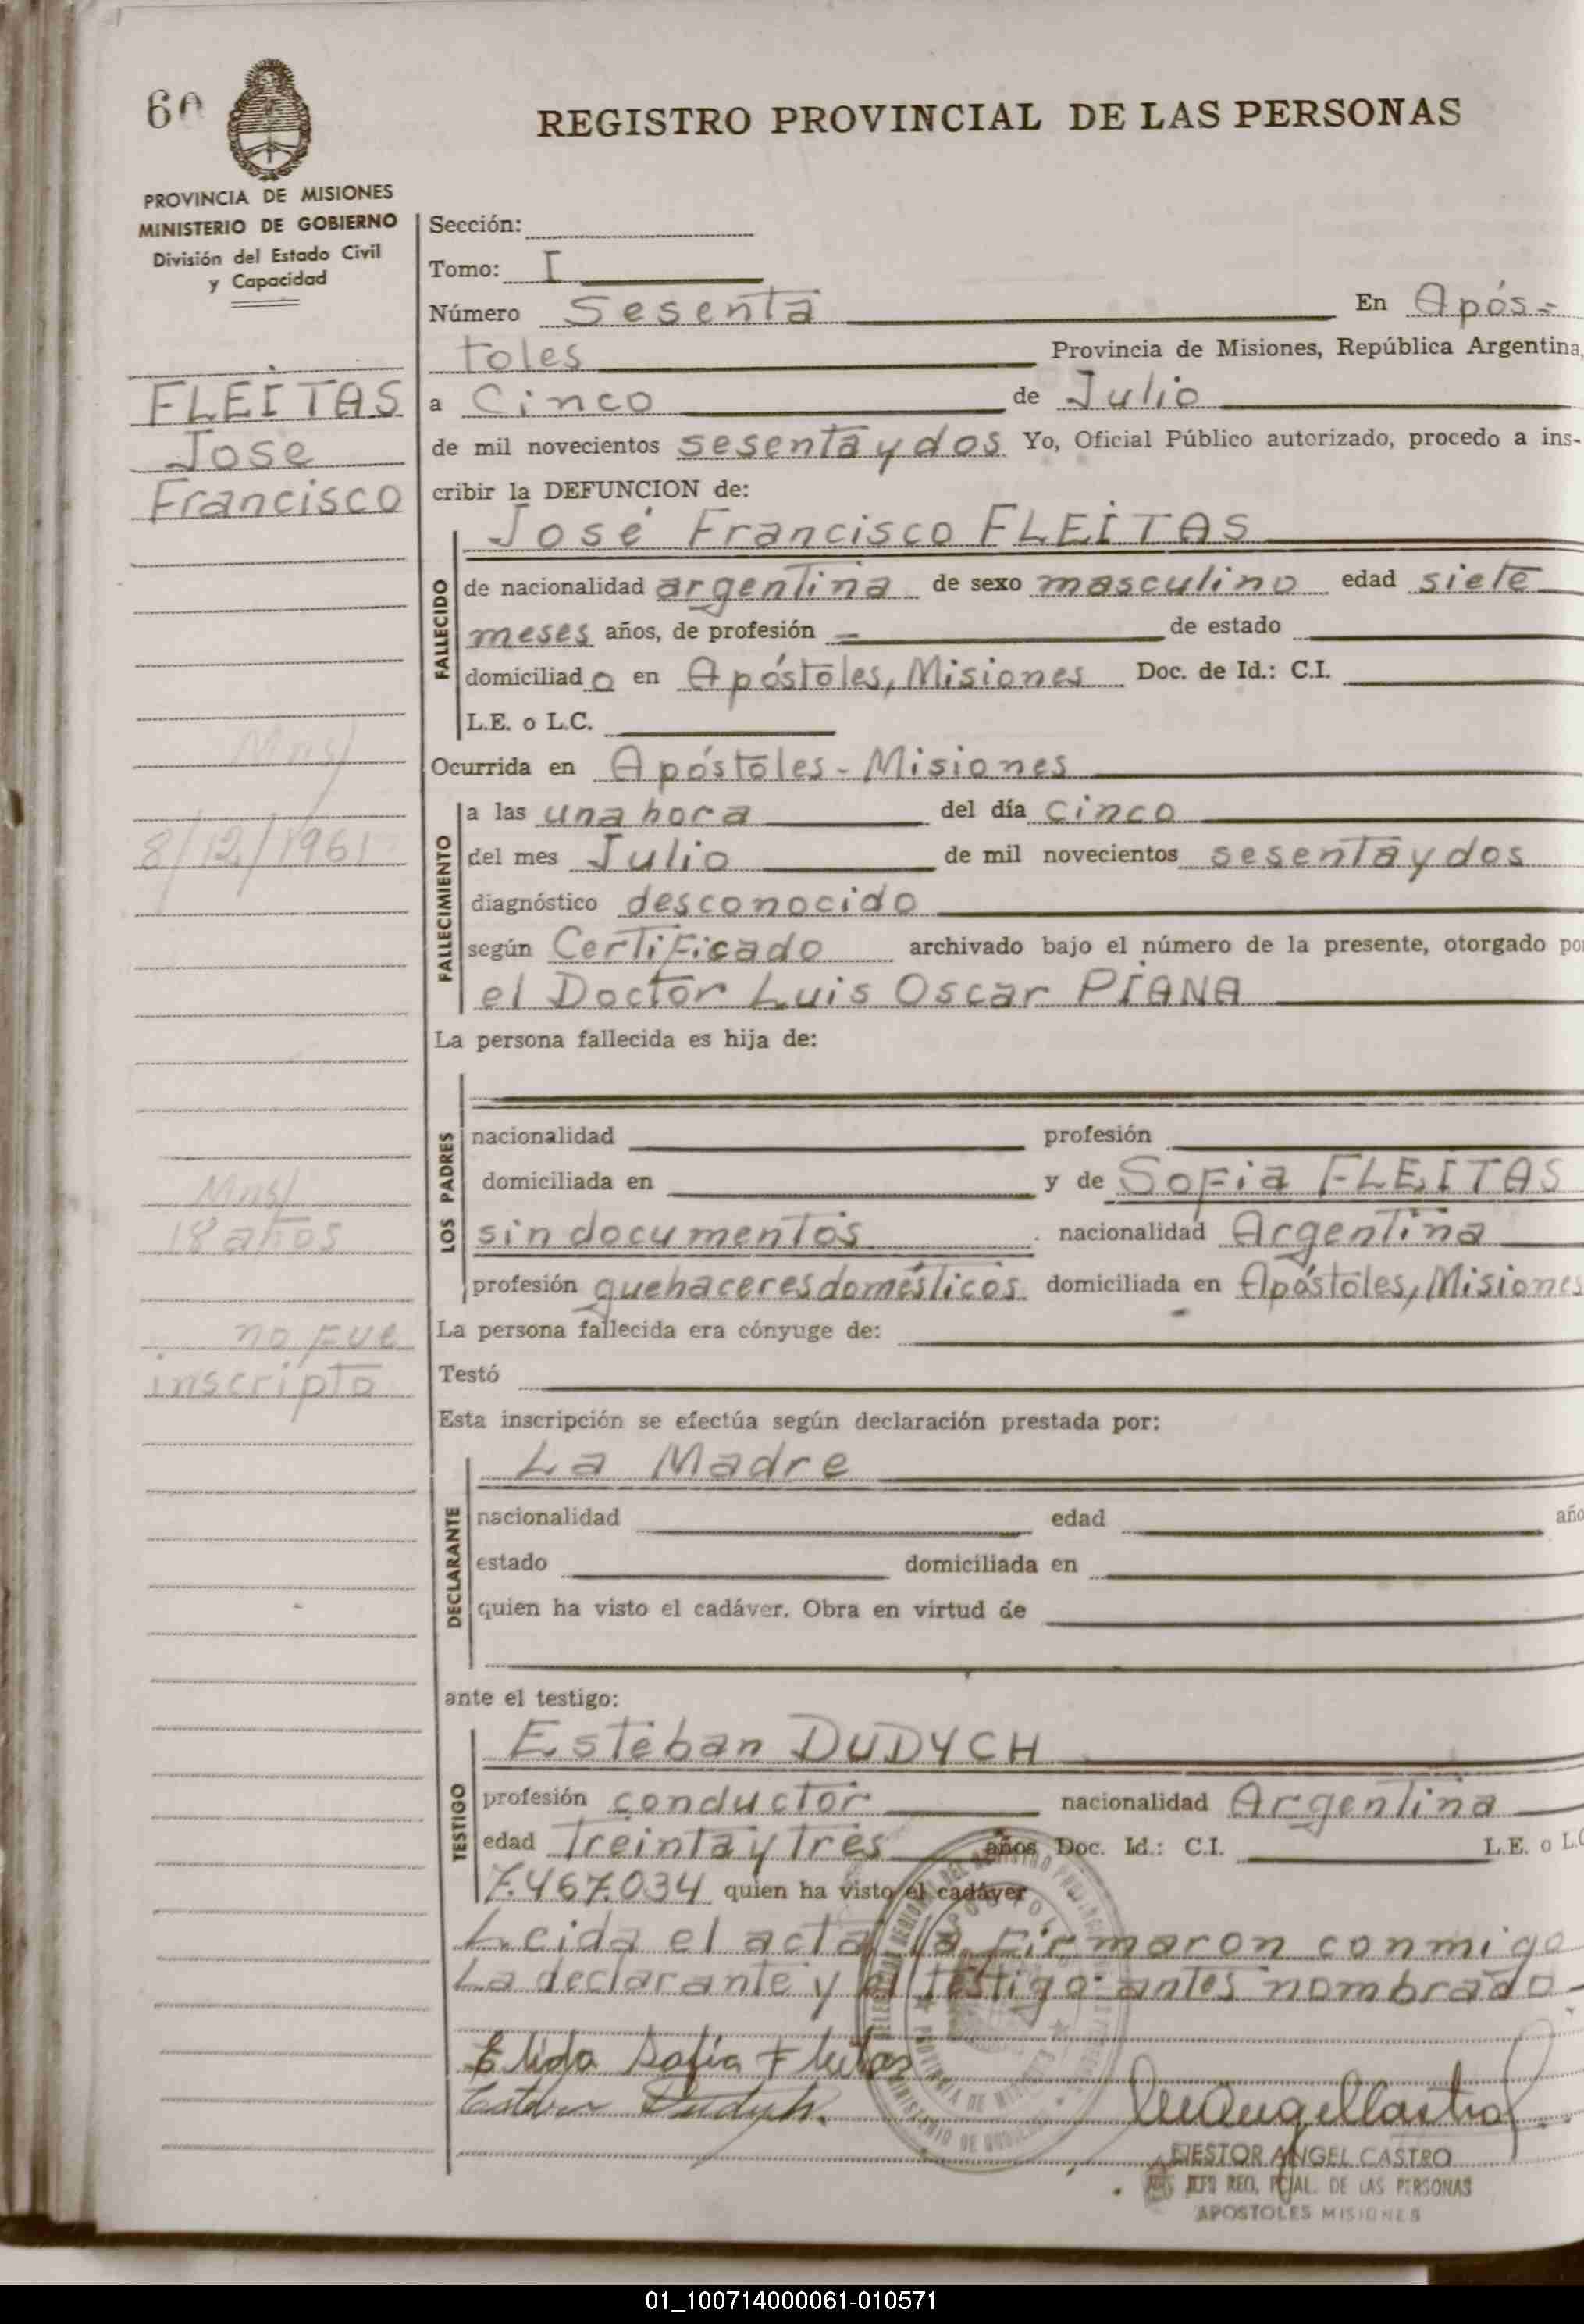 60
REGISTRO PROVINCIAL DE LAS PERSONAS
PROVINCIA DE MISIONES
MINISTERIO DE GOBIERNO
División del Estado Civil
y Capacidad
FLEITAS
Jose
Francisco
8/12/1961
18 años
no Fue
inscripto
Sección:
Tomo: I
Número Sesenta En Após=
toles Provincia de Misiones, República Argentina,
a Cinco de Julio
de mil novecientos sesenta y dos Yo, Oficial Público autorizado, procedo a ins-
cribir la DEFUNCION de:
José Francisco FLEITAS
FALLECIDO
de nacionalidad argentina de sexo masculino edad siete
meses años, de profesión — de estado
domiciliado en Apóstoles, Misiones Doc. de Id.: C.I.
L.E. o L.C.
Ocurrida en Apóstoles - Misiones
FALLECIMIENTO
a las una hora del día cinco
del mes Julio de mil novecientos sesenta y dos
diagnóstico desconocido
según Certificado archivado bajo el número de la presente, otorgado po
el Doctor Luis Oscar PIANA
La persona fallecida es hija de:
LOS PADRES
nacionalidad profesión
domiciliada en y de Sofia FLEITAS
sin documentos nacionalidad Argentina
profesión quehaceres domésticos domiciliada en Apóstoles, Misiones
La persona fallecida era cónyuge de:
Testó
Esta inscripción se efectúa según declaración prestada por:
La Madre
DECLARANTE
nacionalidad edad año
estado domiciliada en
quien ha visto el cadáver. Obra en virtud de
ante el testigo:
Esteban DUDYCH
TESTIGO
profesión conductor nacionalidad Argentina
edad Treinta y Tres años Doc. Id.: C.I. L.E. o L.C
7.467.034 quien ha visto el cadáver
Leida el acta la Firmaron conmigo
La declarante y el testigo antes nombrado-
Elida Sofia Fleitas
Esteban Dudych.
NESTOR ANGEL CASTRO
JEFE REG. PCIAL. DE LAS PERSONAS
APOSTOLES MISIONES
01_100714000061-010571